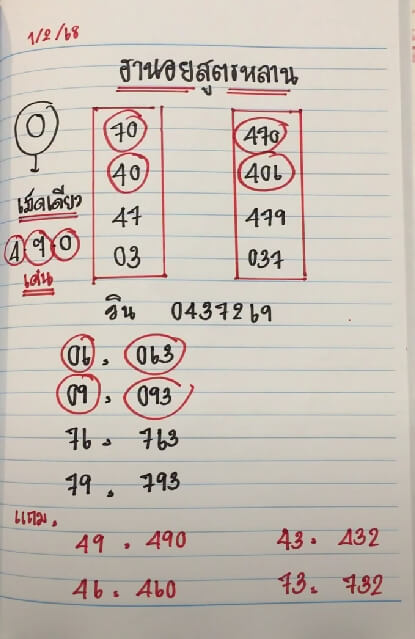 1/2/68
ฮานอยสูตรหลาน
0
เม็ดเดียว
4 7 0
เด่น
70 470
40 406
47 479
03 037
วิน 0437269
06 . 063
09 . 093
76 . 763
79 . 793
แถม .
49 . 490 43 . 432
46 . 460 73 . 732